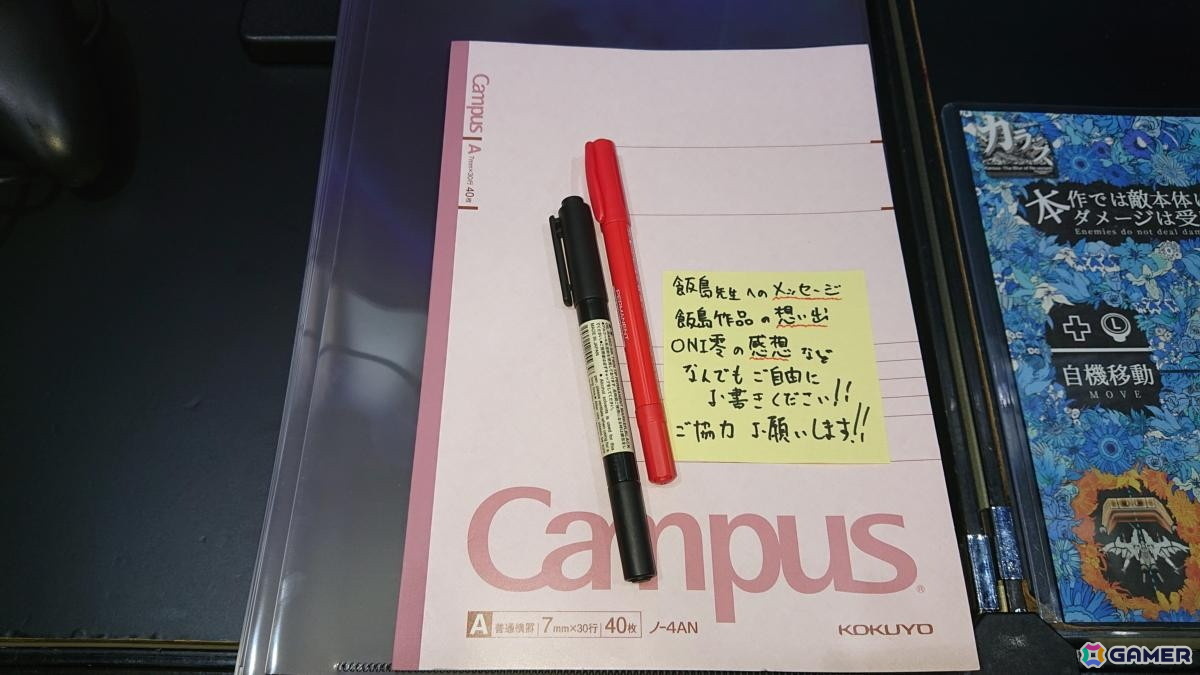 Campus
A 7mm×30行 40枚
飯島先生へのメッセージ
飯島作品の想い出
ONI零の感想 など
なんでもご自由に
お書きください!!
ご協力お願いします!!
PERMANENT
MADE IN JAPAN
Campus®
A 普通横罫 7mm×30行 40枚 ノ-4AN
KOKUYO
カラス
本作では敵本体
ダメージは受
Enemies do not deal dam
L
自機移動
MOVE
GAMER